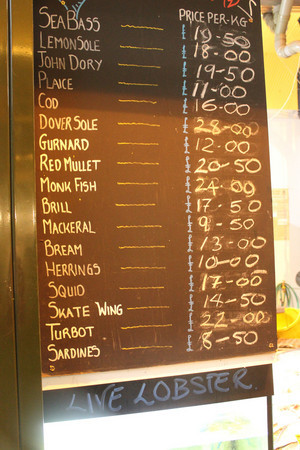 PRICE PER-KG
SEA BASS £ 19-50
LEMON SOLE £ 18-00
JOHN DORY £ 19-50
PLAICE £ 11-00
COD £ 16-00
DOVER SOLE £ 28-00
GURNARD £ 12-00
RED MULLET £ 20-50
MONK FISH £ 24-00
BRILL £ 17-50
MACKERAL £ 9-50
BREAM £ 13-00
HERRINGS £ 10-00
SQUID £ 17-00
SKATE WING £ 14-50
TURBOT £ 22-00
SARDINES £ 8-50
LIVE LOBSTER